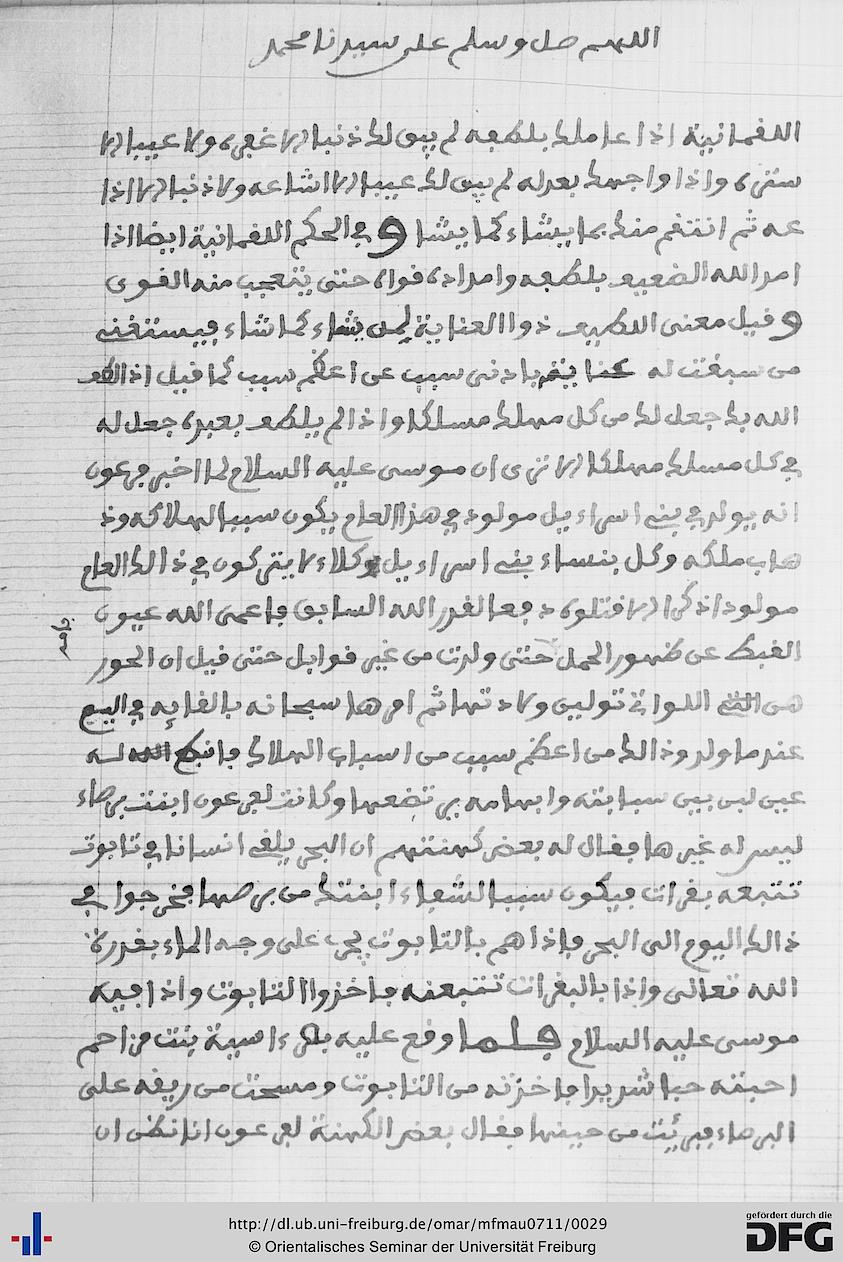 اللهم صل وسلم على سيدنا محمد
اللقمانية اذا عاملك بلطفه لم يبق لك ذنبا الا غفره ولا عيبا الا
ستره واذا واجهك بعدله لم يبق لك عيبا الا اشاعه ولا ذنبا الا اذا
عه ثم انتقم منك بما يشاء كما يشا و في الحكم اللقمانية ايضا اذا
امد الله الضعيف بلطفه وامداده قواه حتى يتعجب منه القوى
و قيل معنى اللطيف ذوا العناية لمن يشاء كما شاء فيستغنى
من سبقت له بادنى سبب عن اعظم سبب كما قيل اذا لطف
الله بك جعل لك من كل مهلك مسلكا واذا لم يلطف بعبده جعل له
في كل مسلك مهلكا الا ترى ان موسى عليه السلام لما اخبر فرعون
انه يولد في بنى اسراءيل مولود في هذا العام يكون سببا لهلاكه وذ
هاب ملكه وكل بنساء بنى اسراءيل وكلاء لا يتركون في ذالك العام
مولودا ذكرا الا قتلوه دفعا لقدر الله السابق فاعمى الله عيون
القبط عن ظهور الحمل حتى ولدت من غير قوابل حتى قيل ان الحور
هن اللواتي تولين ولادتها ثم امرها سبحانه بالقايه في اليم
عند ما ولد وذالك من اعظم سبب من اسباب الهلاك فانبع الله له
عين لبن بين سبابته وابهامه يرتضعها وكانت لفرعون ابنت برصاء
ليس له غيرها فقال له بعض كهنتهم ان البحر يلقى انسانا في تابوت
تتبعه بقرات فيكون سببا لشفاء ابنتك من برصها فخرجوا في
ذالك اليوم الى البحر فاذا هم بالتابوت يجرى على وجه الماء بقدرة
الله تعالى واذا بالبقرات تتبعه فاخذوا التابوت واذا فيه
موسى عليه السلام فلما وقع عليه بصر ءاسية بنت مزاحم
احبته حبا شديدا فاخذته من التابوت ومسحت من ريقه على
البرصاء فبرئت من حينها فقال بعض الكهنة لفرعون انا نظن ان
http://dl.ub.uni-freiburg.de/omar/mfmau0711/0029
© Orientalisches Seminar der Universität Freiburg
gefördert durch die
DFG